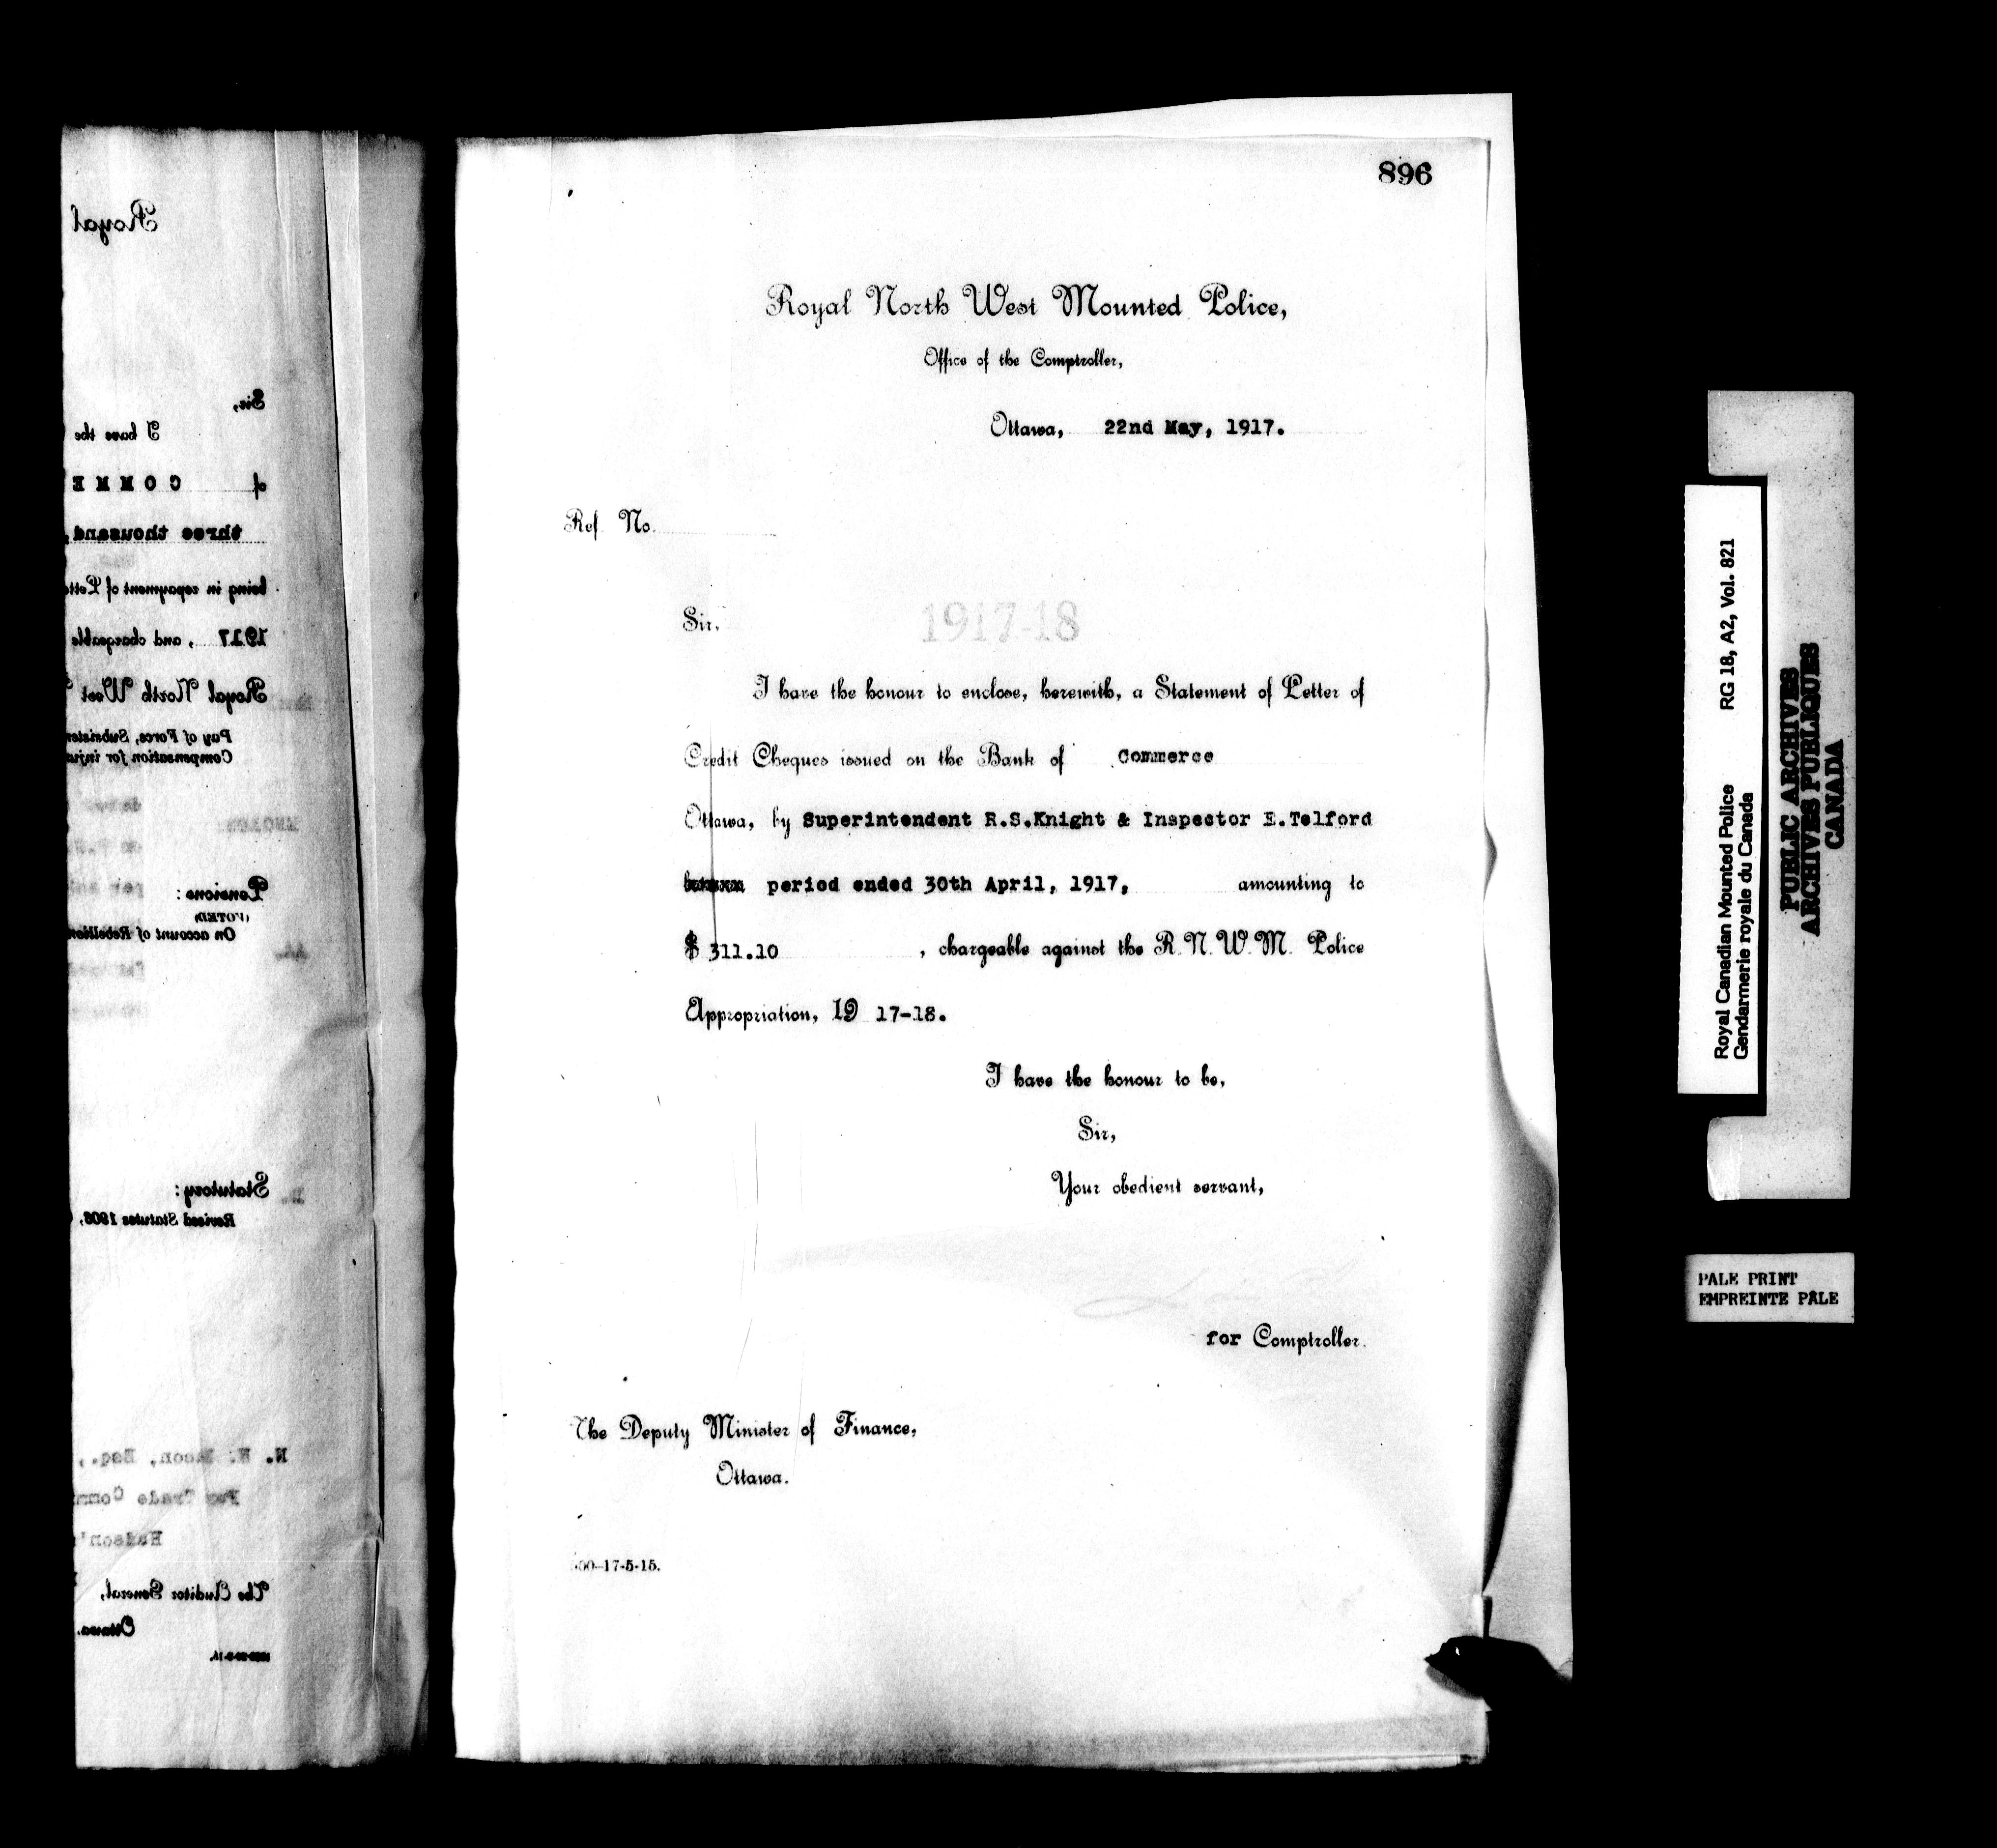 896
Royal North West Mounted Police,
Office of the Comptroller,
Ottawa, 22nd May, 1917.
Ref. No.
1917-18
Sir,
I have the honour to enclose, herewith, a Statement of Letter of
Credit Cheques issued on the Bank of Commerce
Ottawa, by Superintendent R.S.Knight & Inspector E.Telford
period ended 30th April, 1917, amounting to
$ 311.10 , chargeable against the R.N.W.M. Police
Appropriation, 19 17-18.
I have the honour to be,
Sir,
Your obedient servant,
for Comptroller.
The Deputy Minister of Finance,
Ottawa.
00-17-5-15.
Royal
Sir,
I have the
of COMME
three thousand,
being in repayment of Lette
1917 , and chargeable
Royal North West
Pay of Force, Subsisten
Compensation for injur
Pensions:
(VOTED)
On account of Rebellion
Statutory:
Revised Statutes 1906,
N. H. Bacon, Esq.,
Fur Trade Comm
Hudson's
The Auditor General,
Ottawa.
Royal Canadian Mounted Police RG 18, A2, Vol. 821
Gendarmerie royale du Canada
PUBLIC ARCHIVES
ARCHIVES PUBLIQUES
CANADA
PALE PRINT
EMPREINTE PÂLE